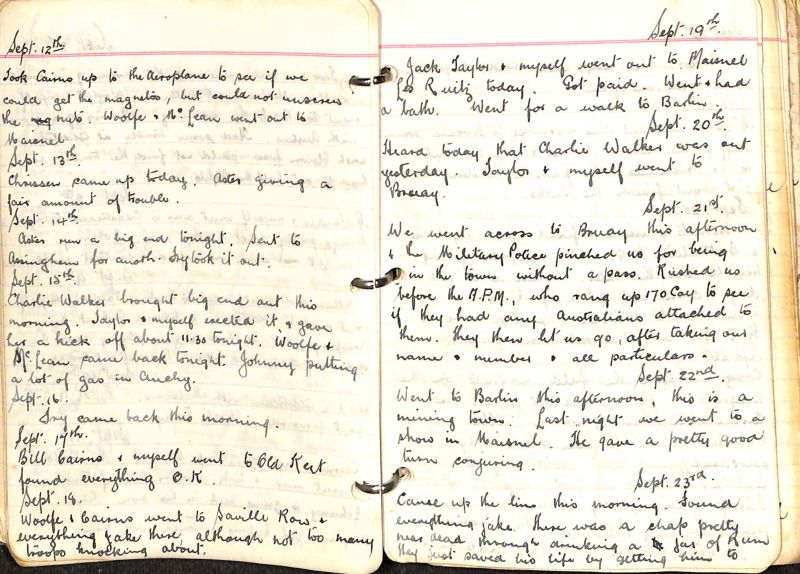 Sept. 12th.
Took Cairns up to the Aeroplane to see if we
could get the magnetos, but could not unscrew
the nuts. Woolfe & McLean went out to
Maisnel
Sept. 13th.
Chrissen came up today. Aster giving a
fair amount of trouble.
Sept. 14th.
Aster run a big end tonight. Sent to
for anoth. Ivy took it out.
Sept. 15th.
Charlie Walker brought big end out this
morning. Taylor & myself erected it, & gave
her a kick off about 11.30 tonight. Woolfe &
McLean came back tonight. Johnny putting
a lot of gas in Auchy.
Sept. 16.
Ivy came back this morning.
Sept. 17th.
Bill Cairns & myself went to Old Kert
found everything O.K.
Sept. 18.
Woolfe & Cairns went to Saville Row &
everything jake there, although not too many
troops knocking about.
Sept. 19th.
Jack Taylor & myself went out to Maisnel
Les Ruitz today. Got paid. Went & had
a bath. Went for a walk to Barlin.
Sept. 20th.
Heard today that Charlie Walker was out
yesterday. Taylor & myself went to
Bruay.
Sept. 21st.
We went across to Bruay this afternoon
& the Military Police pinched us for being
in the town without a pass. Rushed us
before the A.P.M., who rang up 170 Coy to see
if they had any Australians attached to
them. They then let us go, after taking our
name & number & all particulars.
Sept. 22nd.
Went to Barlin this afternoon, this is a
mining town. Last night we went to a
show in Maisnel. He gave a pretty good
turn conjuring.
Sept. 23rd.
Came up the line this morning. Found
everything jake. There was a chap pretty
near dead through drinking a jar of Rum
they just saved his life by getting him to